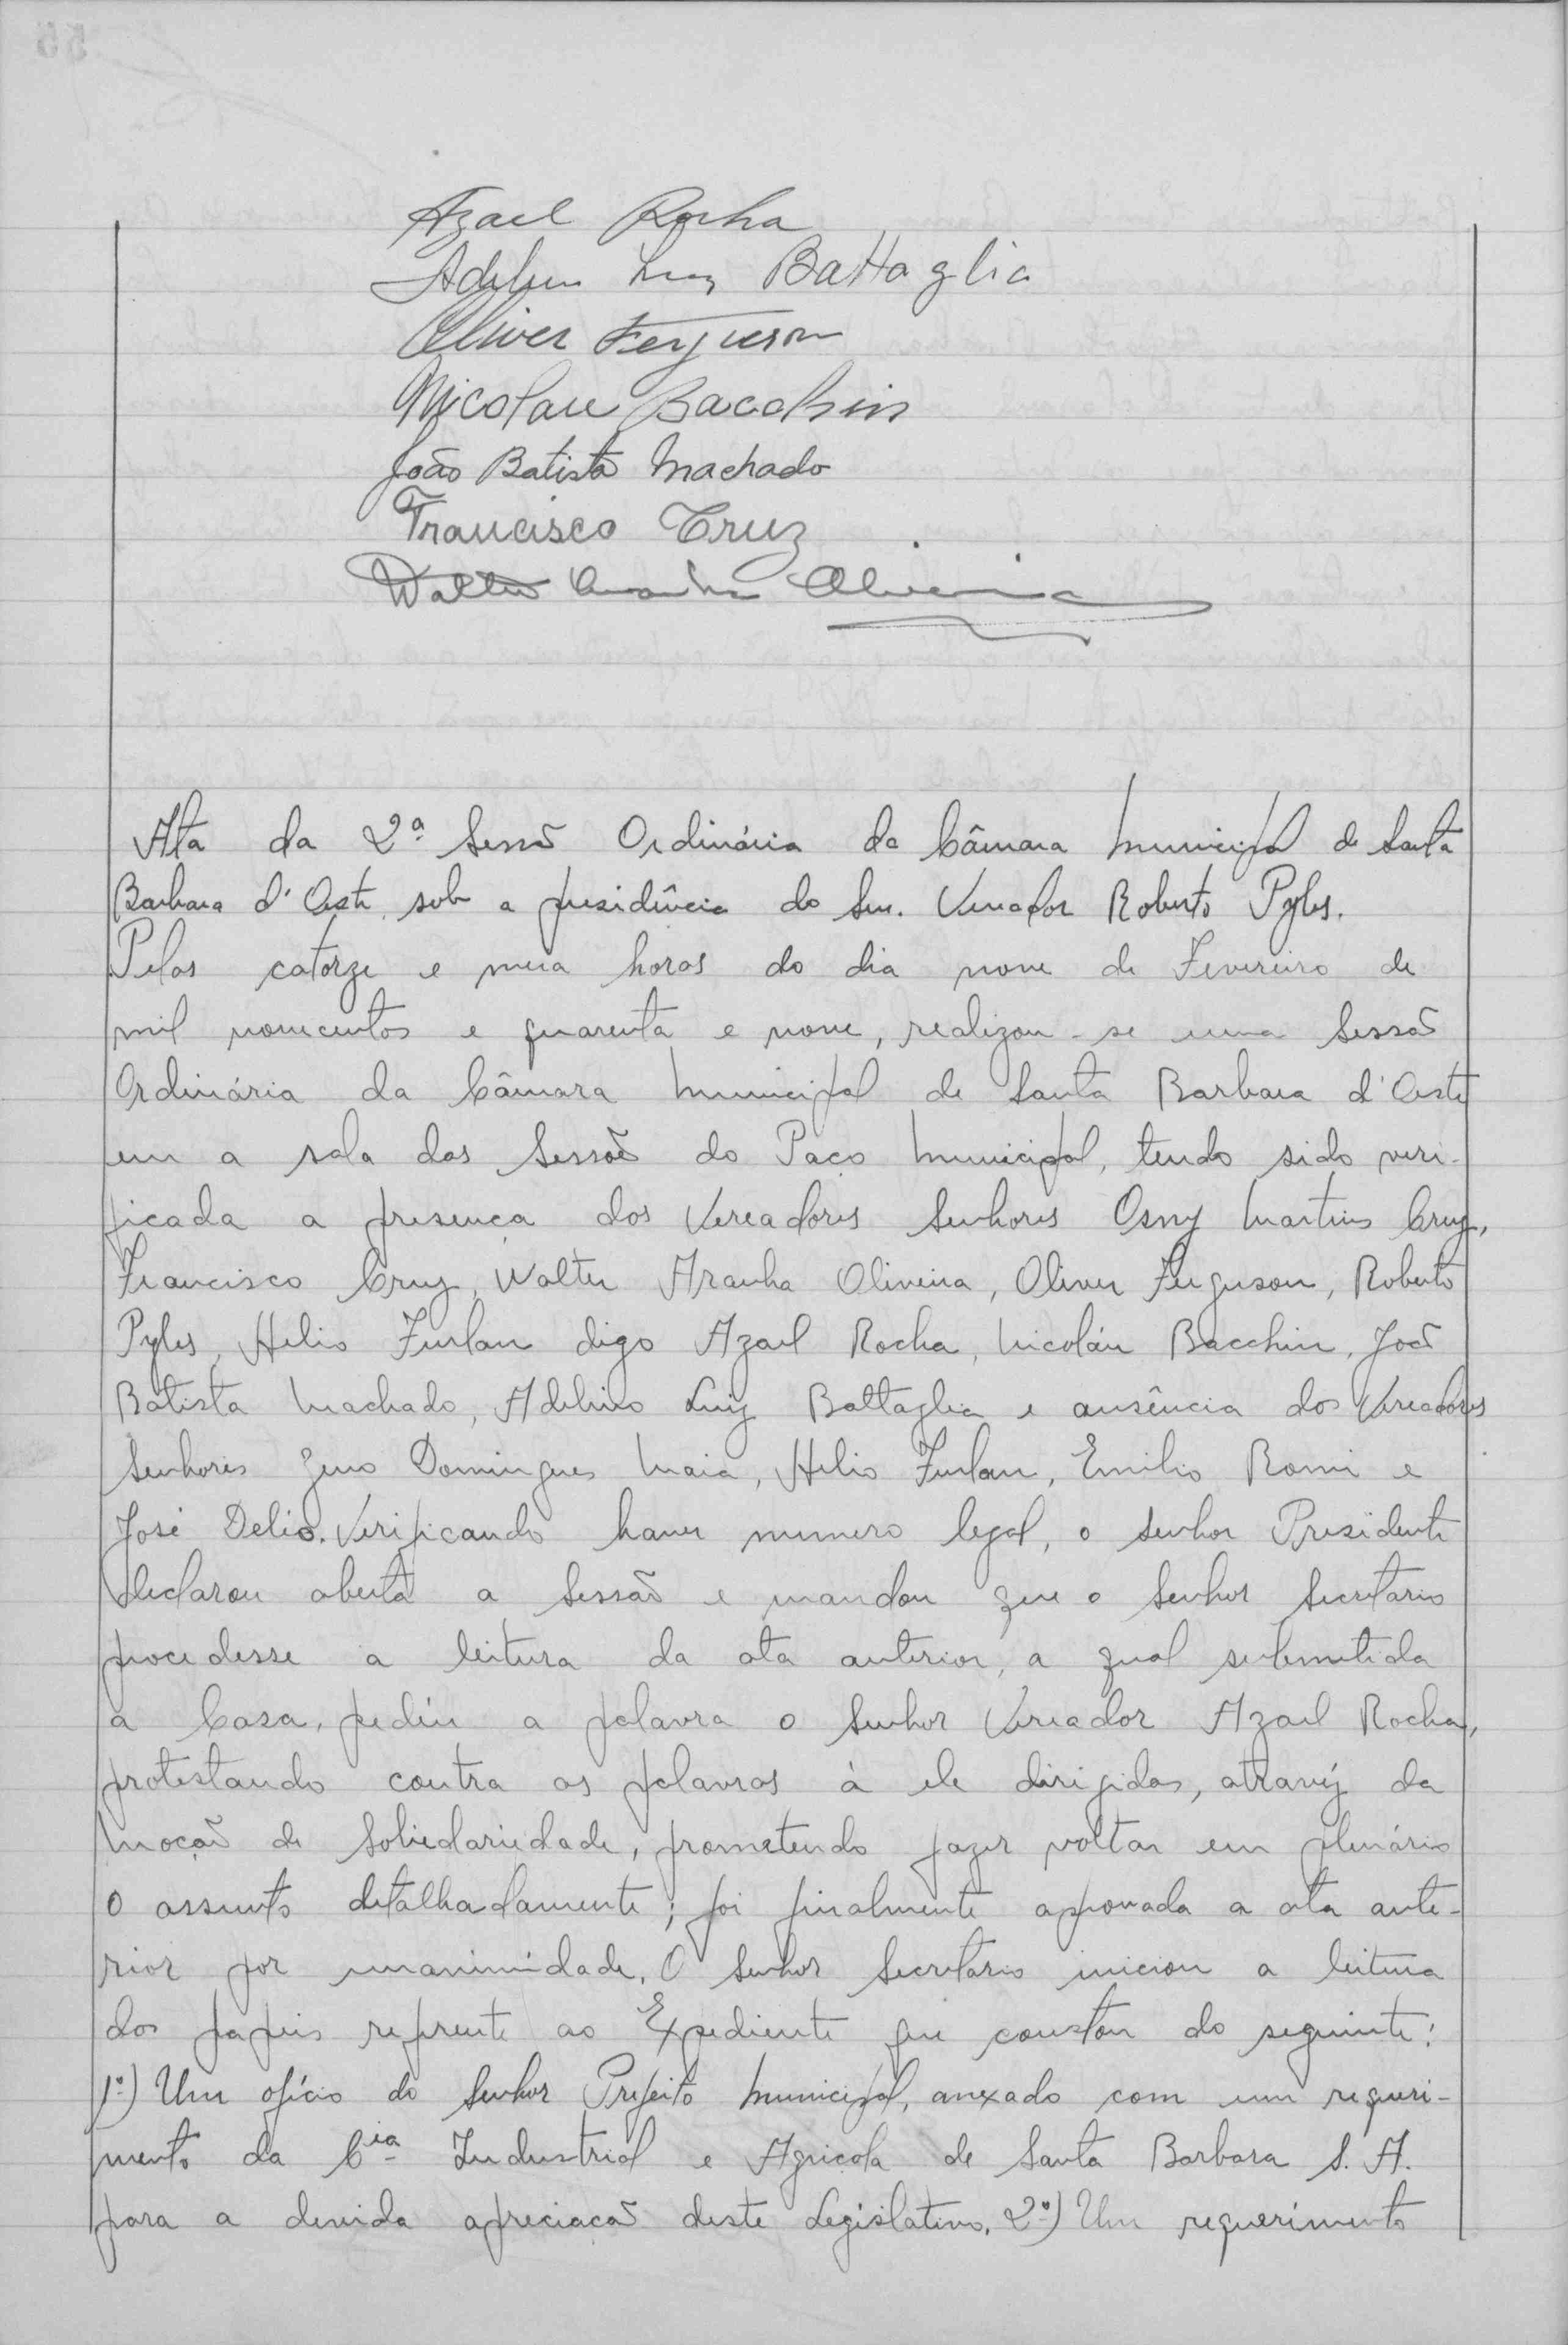 Azael Rocha
Adelino Luiz Battaglia
Oliver Ferguson
Nicolau Bacchin
João Batista Machado
Francisco Cruz
Walter Aranha Oliveira
Ata da 2ª Sessão Ordinária da Câmara Municipal de Santa
Barbara d'Oeste, sob a presidência do Snr. Vereador Roberto Pyles.
Pelas catorze e meia horas do dia nove de Fevereiro de
mil novecentos e quarenta e nove, realizou-se uma Sessão
Ordinária da Câmara Municipal de Santa Barbara d'Oeste
em a sala das Sessoẽs do Paço Municipal, tendo sido veri-
ficada a presença dos Vereadores Senhores Osny Martins Cruz,
Francisco Cruz, Walter Aranha Oliveira, Oliver Ferguson, Roberto
Pyles, Helio Furlan digo Azael Rocha, Nicoláu Bacchin, João
Batista Machado, Adelino Luiz Battaglia e ausência dos Vereadores
Senhores Zeno Domingues Maia, Helio Furlan, Emilio Romi e
José Delio. Verificando haver numero legal, o senhor Presidente
declarou aberta a Sessão e mandou que o Senhor Secretario
procedesse a leitura da ata anterior, a qual submetida
a Casa, pediu a palavra o Senhor Vereador Azael Rocha,
protestando contra as palavras à ele dirigidas, atravéz da
Moção de Soliedariedade, prometendo fazer voltar em plenário
o assunto detalhadamente; foi finalmente aprovada a ata ante-
rior por unanimidade. O Senhor Secretario iniciou a leitura
dos papeis referente ao Expediente que constou do seguinte:
1º) Um ofício do Senhor Prefeito Municipal, anexado com um requeri-
mento da Cia Industrial e Agricola de Santa Barbara S. A.
para a devida apreciacão deste Legislativo. 2º) Um requerimento